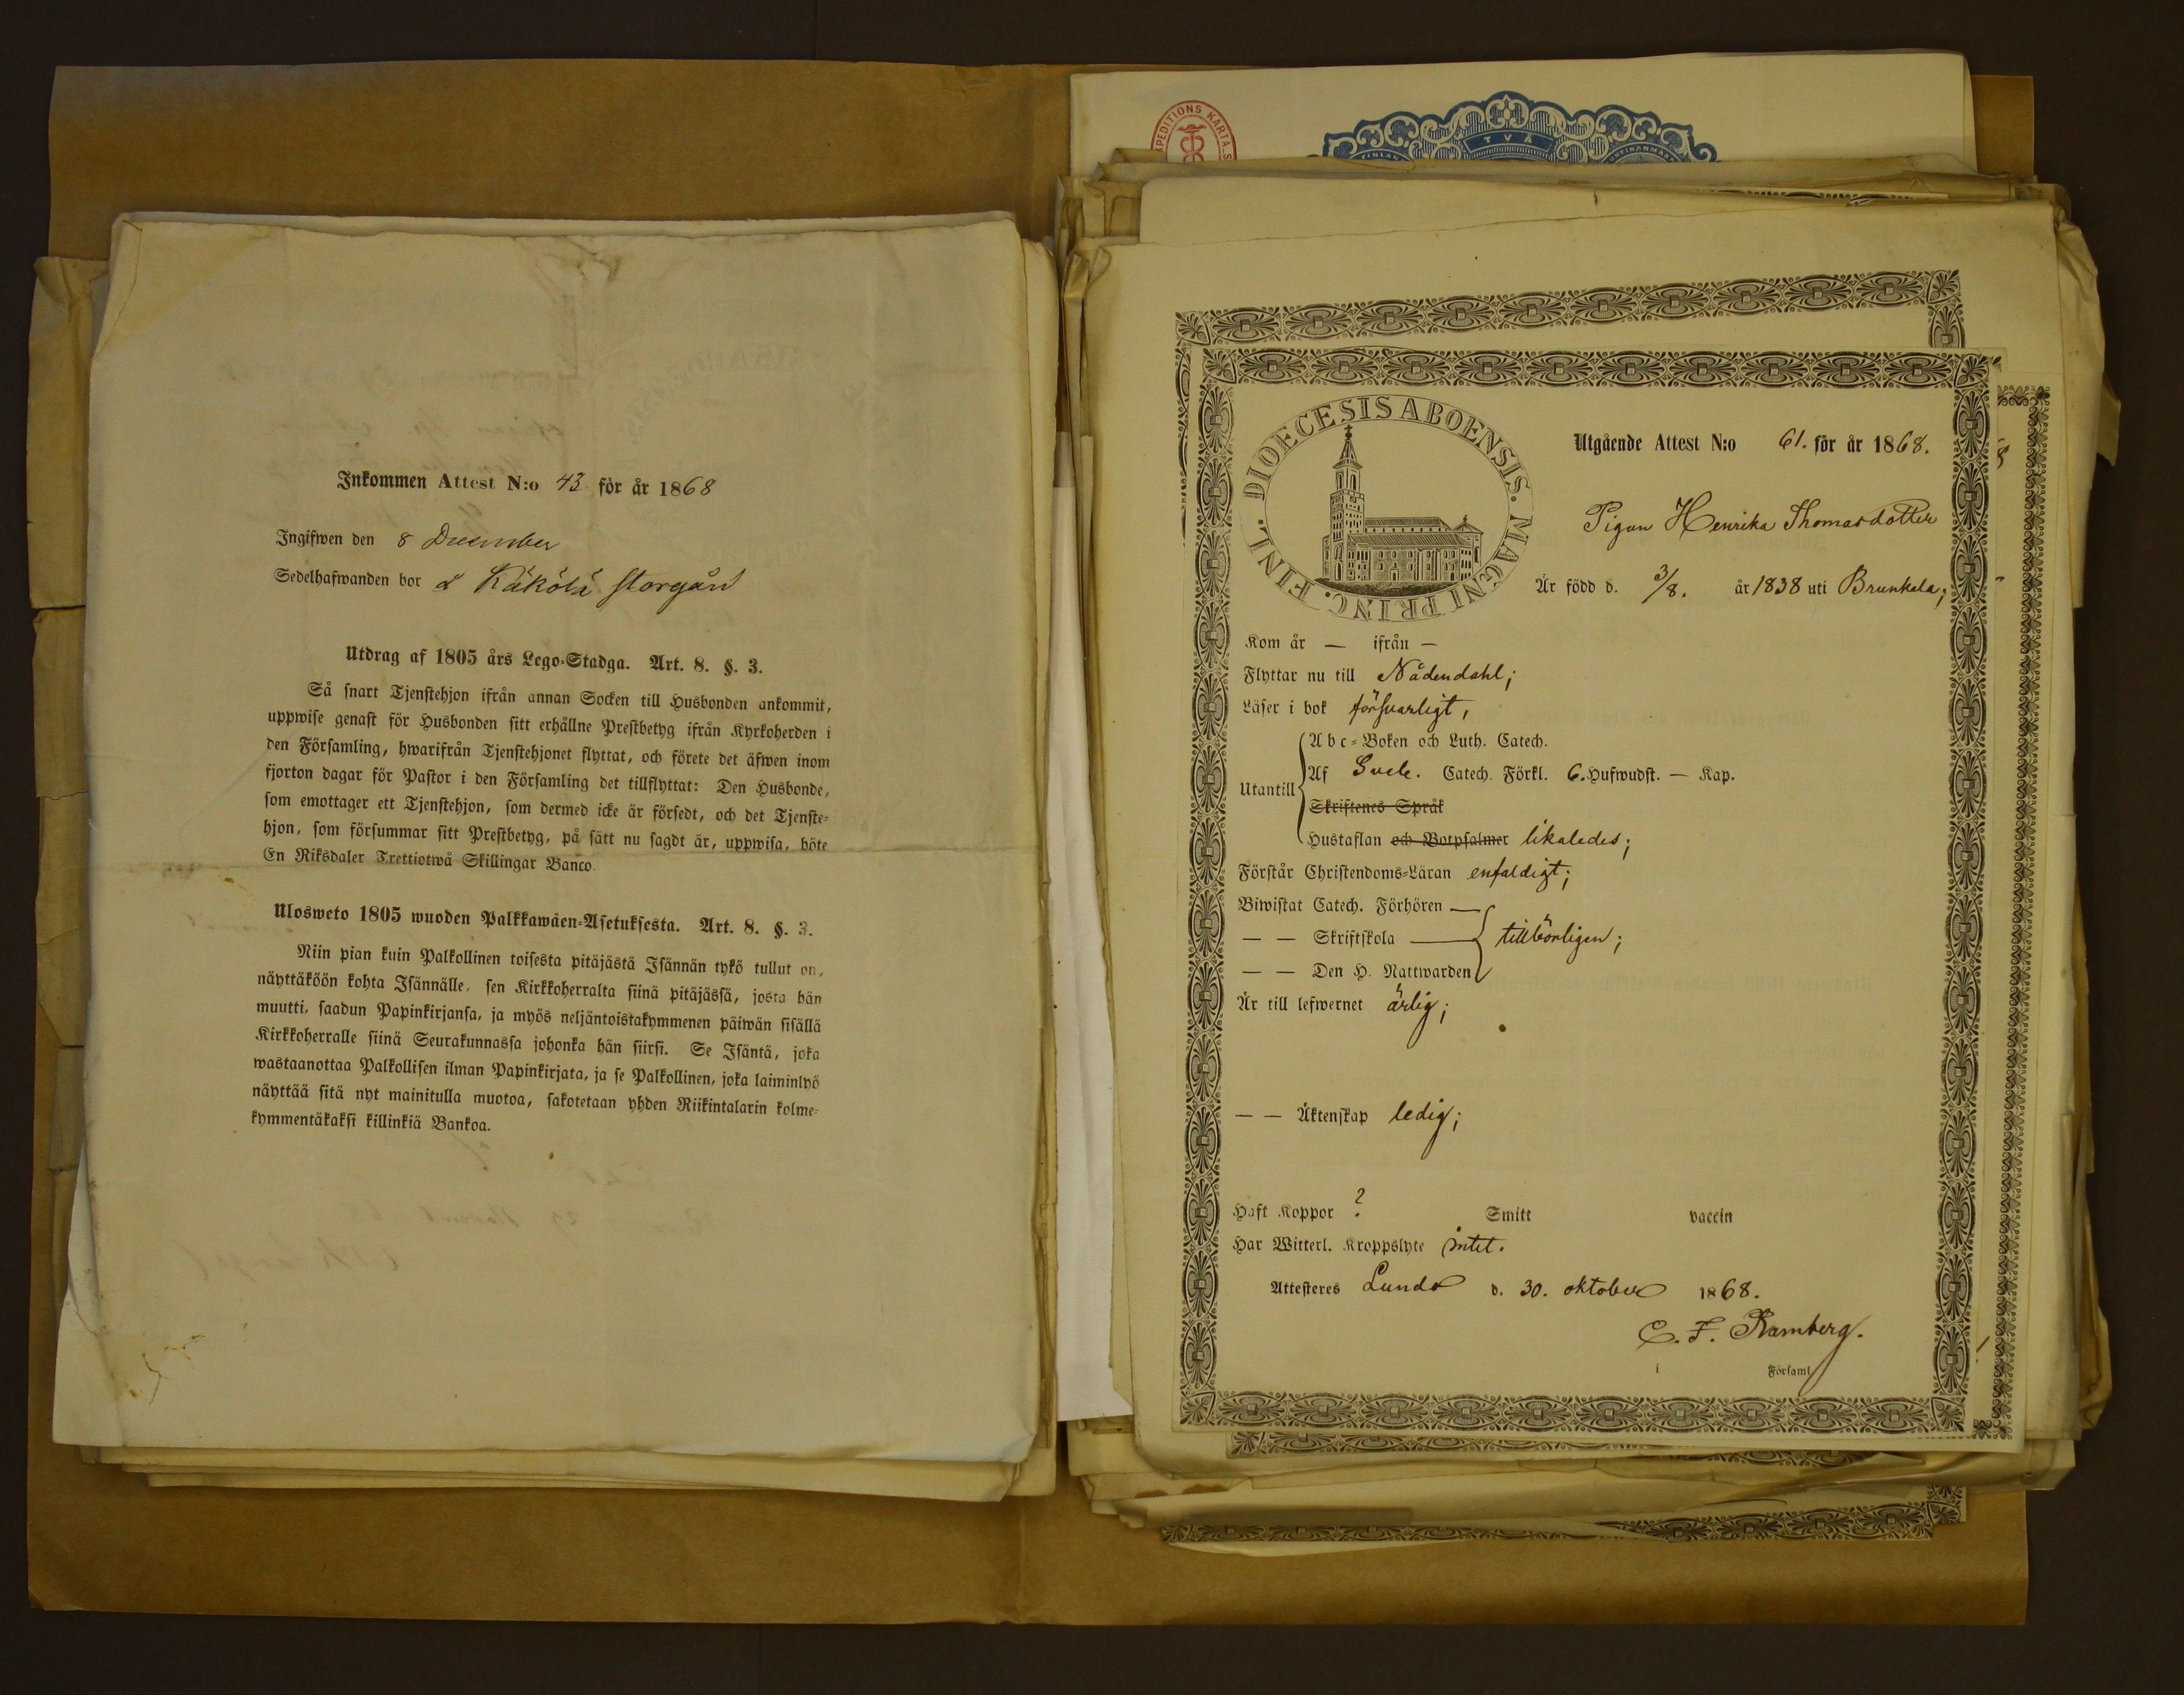 Inkommen Attest N:o 43 för år 1868
Ingifwen den 8 December
Sedelhafwanden bor å Käkölä storgård
Utdrag af 1805 års Lego-Stadga. Art. 8. §. 3.
Så snart Tjenstehjon ifrån annan Socken till Husbonden ankommit,
uppwise genast för Husbonden sitt erhållne Prestbetyg ifrån Kyrkoherden i
den Församling, hwarifrån Tjenstehjonet flyttat, och förete det äfwen inom
fjorton dagar för Pastor i den Församling det tillflyttat: Den Husbonde,
som emottager ett Tjenstehjon, som dermed icke är försedt, och det Tjenste-
hjon, som försummar sitt Prestbetyg, på sätt nu sagdt är, uppwisa, böte
En Riksdaler Trettiotwå Skillingar Banco.
Ulosweto 1805 wuoden Palkkawäen-Asetuksesta. Art. 8. §. 3.
Niin pian kuin Palkollinen toisesta pitäjästä Isännän tykö tullut on,
näyttäköön kohta Isännälle, sen Kirkkoherralta siinä pitäjässä, josta hän
muutti, saadun Papinkirjansa, ja myös neljäntoistakymmenen päiwän sisällä
Kirkkoherralle siinä Seurakunnassa johonka hän siirsi. Se Isäntä, joka
wastaanottaa Palkollisen ilman Papinkirjata, ja se Palkollinen, joka laiminlyö
näyttää sitä nyt mainitulla muotoa, sakotetaan yhden Riikintalarin kolme-
kymmentäkaksi killinkiä Bankoa.
PEDITIONS KARTA.S
TVÅ
FINLAN
DIOECESIS ABOENSIS. MAGNI PRINC. FINL.
Utgående Attest N:o 61. för år 1868.
Pigan Henrika Thomasdotter
Är född d. 3/8. år 1838 uti Brunkala;
Kom år — ifrån —
Flyttar nu till Nådendahl;
Läser i bok försvarligt,
Utantill
Abc-Boken och Luth. Catech.
Af Sveb. Catech. Förkl. 6. Hufwudst. — Kap.
Skriftenes Språk
Hustaflan och Botpsalmer likaledes;
Förstår Christendoms-Läran enfaldigt;
Biwistat Catech. Förhören —
— — Skriftskola — tillbörligen;
— — Den H. Nattwarden
Är till lefwernet ärlig;
— — Äktenskap ledig;
Haft Koppor ? Smitt vaccin
Har Witterl. Kroppslyte intet.
Attesteras Lundo d. 30. oktober 1868.
C. F. Ramberg.
Församl